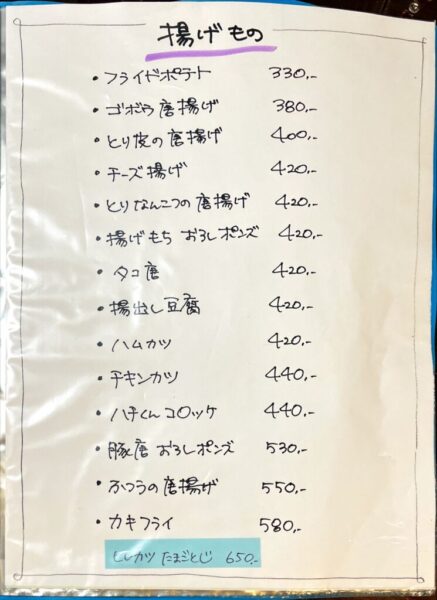 揚げもの
・フライドポテト 330,-
・ゴボウ唐揚げ 380,-
・とり皮の唐揚げ 400,-
・チーズ揚げ 420,-
・とりなんこつの唐揚げ 420,-
・揚げもち おろしポンズ 420,-
・タコ唐 420,-
・揚出し豆腐 420,-
・ハムカツ 420,-
・チキンカツ 440,-
・ハチくんコロッケ 440,-
・豚唐おろしポンズ 530,-
・ふつうの唐揚げ 550,-
・カキフライ 580,-
ヒレカツ たまごとじ 650,-